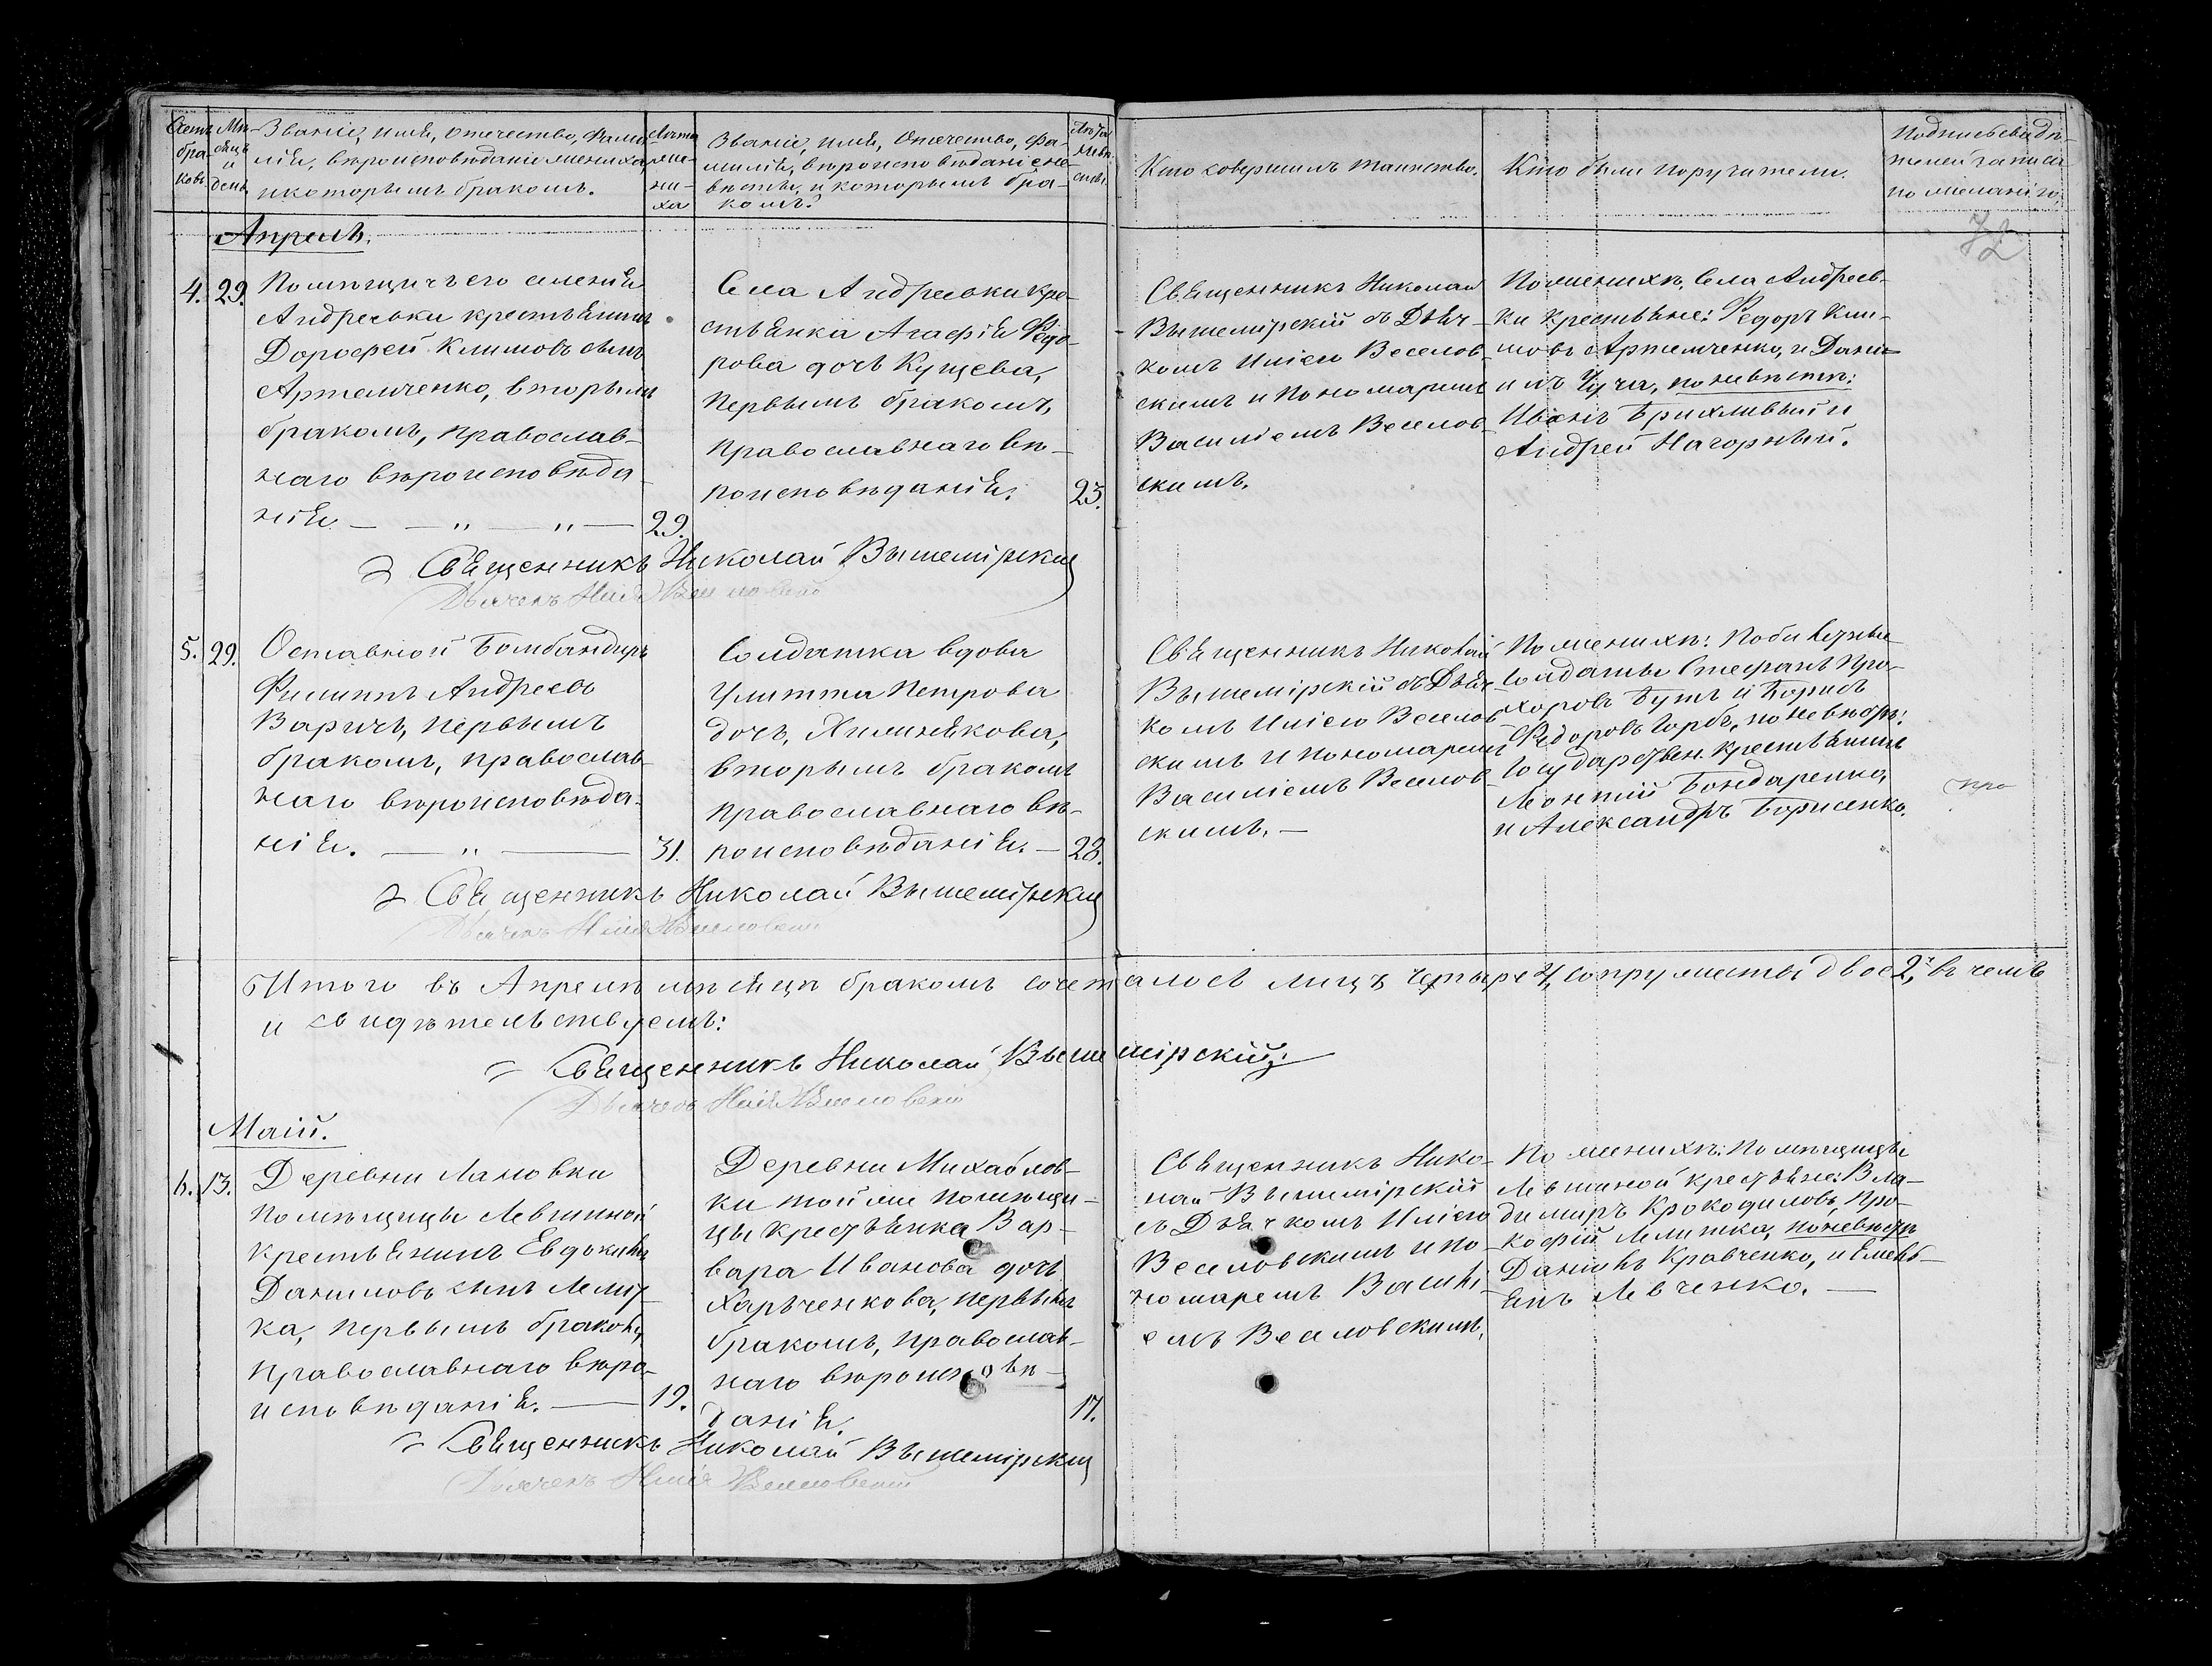 Счетъ бра-ковъ
Мѣ-сяцъ и день
Званіе, имя, отечество, фами-
лія, вѣроисповѣданіе жениха,
и которымъ бракомъ.
Лѣта же-ни-ха
Званіе, имя, отечество, фа-
милія, вѣроисповѣданіе не-
вѣсты, и которымъ бра-
комъ?
Лѣта невѣ-сты
Кто совершилъ таинство.
Кто были поручители.
Подпись свидѣ-
телей записи
по желанію.
72
Апрель.
4. 29.
Помѣщичьего имѣнія
Андреевки крестьянинъ
Дорофей Климовъ сынъ
Артемченко, вторымъ
бракомъ, православ-
наго вѣроисповѣда
нія. — — „ — „ — 29.
Села Андреевки кре-
стьянка Агафія Федо-
рова дочь Кущева,
первымъ бракомъ,
православнаго вѣ-
поисповѣданія. 23.
Священникъ Николай
Вышемірскій съ Дьяч-
комъ Иліею Веселов-
скимъ и Пономаремъ
Василіемъ Веселов-
скимъ.
По женихѣ, села Андреев-
ки крестьяне: Федоръ Кли-
мовъ Артемченко, и Дани-
илъ Чуча, по невѣстѣ:
Иванъ Брихливый и
Андрей Нагорный.
Священникъ Николай Вышемірскій
Дьячекъ Илія Веселовскій
5. 29.
Оставной Бомбандиръ
Филиппъ Андреевъ
Варичъ, первымъ
бракомъ, православ-
наго вѣроисповѣда-
нія. — „ — 31.
Солдатка вдова
Улитта Петрова
дочь, Хилинякова,
вторымъ бракомъ
православнаго вѣ-
поисповѣданія. — 28.
Священникъ Николай
Вышемірскій съ Дьяч-
комъ Иліею Веселов-
скимъ и Пономаремъ
Василіемъ Веселов-
скимъ. —
По женихѣ:
Солдаты Стефанъ Про-
хоровъ Бутъ и Борисъ
Федоровъ Горбъ, по невѣстѣ:
Государствен. крестьянинъ
Леонтій Бондаренко,
и Александръ Борисенко.
Священникъ Николай Вышемірскій
Дьячекъ Илія Веселовскій
Итого въ Апрелѣ мѣсяцѣ бракомъ сочеталось лицъ четыре 4, супружествъ двое 2, въ чемъ
и свидѣтельствуемъ:
Священникъ Николай Вышемірскій
Дьячекъ Илія Веселовскій
Маій.
6. 13.
Деревни Лановки
помѣщицы Левшиной
крестьянинъ Евдокимъ
Даниловъ сынъ Лелит-
ка, первымъ бракомъ,
православнаго вѣро-
исповѣданія. — 19.
Деревни Михайлов-
ки той же помѣщи-
цы крестьянка Вар-
вара Иванова дочь
Харьченкова, первымъ
бракомъ, православ-
наго вѣроисповѣ-
данія. 17.
Священникъ Нико-
лай Вышемірскій
съ Дьячкомъ Иліею
Веселовскимъ и по
номаремъ Василі-
емъ Веселовскимъ.
По женихѣ: помѣщицы
Левшиной крестьяне: Вла-
димиръ Крокодиловъ, Про-
кофій Лелитка, по невѣстѣ
Даніилъ Кравченко, и Емель-
янъ Левченко. —
Священникъ Николай Вышемірскій
Дьячекъ Илія Веселовскій